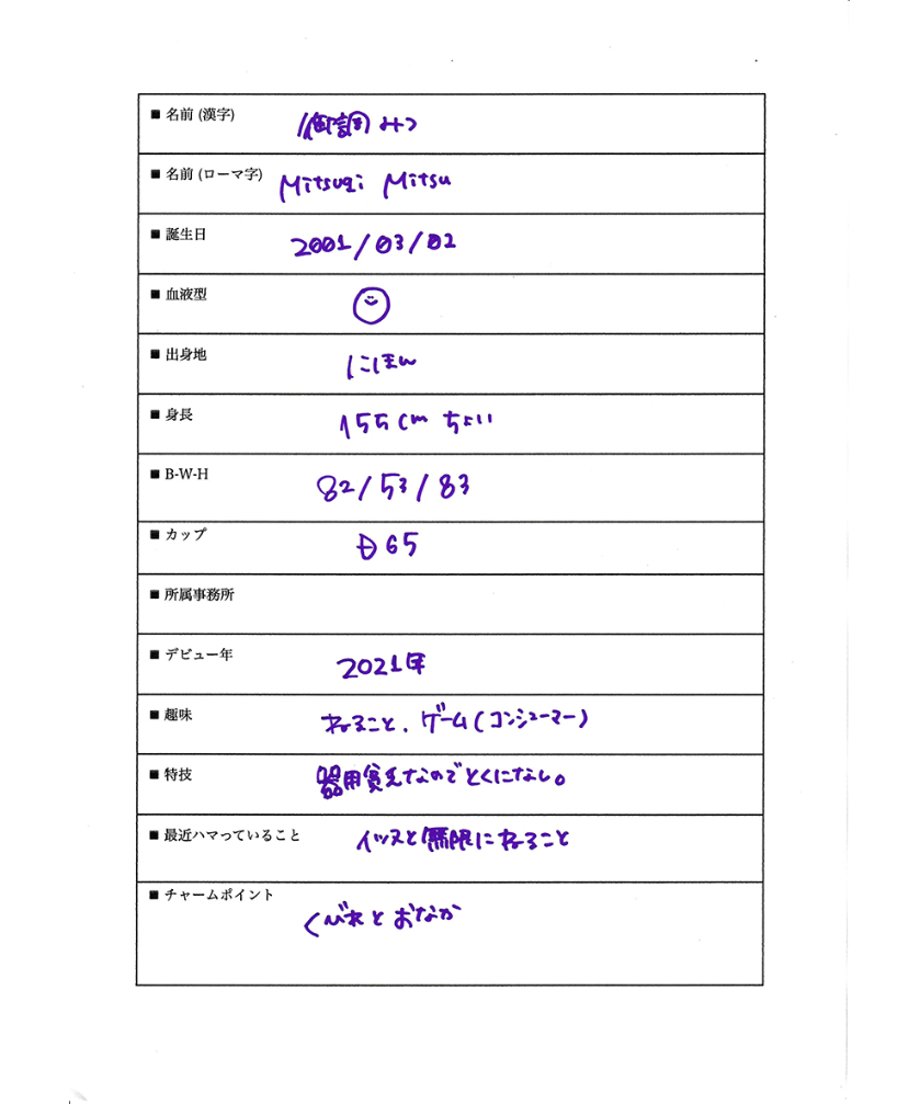 ■ 名前 (漢字) 御調 みつ
■ 名前 (ローマ字) Mitsugi Mitsu
■ 誕生日 2001/03/02
■ 血液型
■ 出身地 にほん
■ 身長 155cm ちょい
■ B-W-H 82/53/83
■ カップ D65
■ 所属事務所
■ デビュー年 2021年
■ 趣味 ねること、ゲーム(コンシューマー)
■ 特技 器用貧乏なのでとくになし。
■ 最近ハマっていること イッヌと無限にねること
■ チャームポイント くびれとおなか